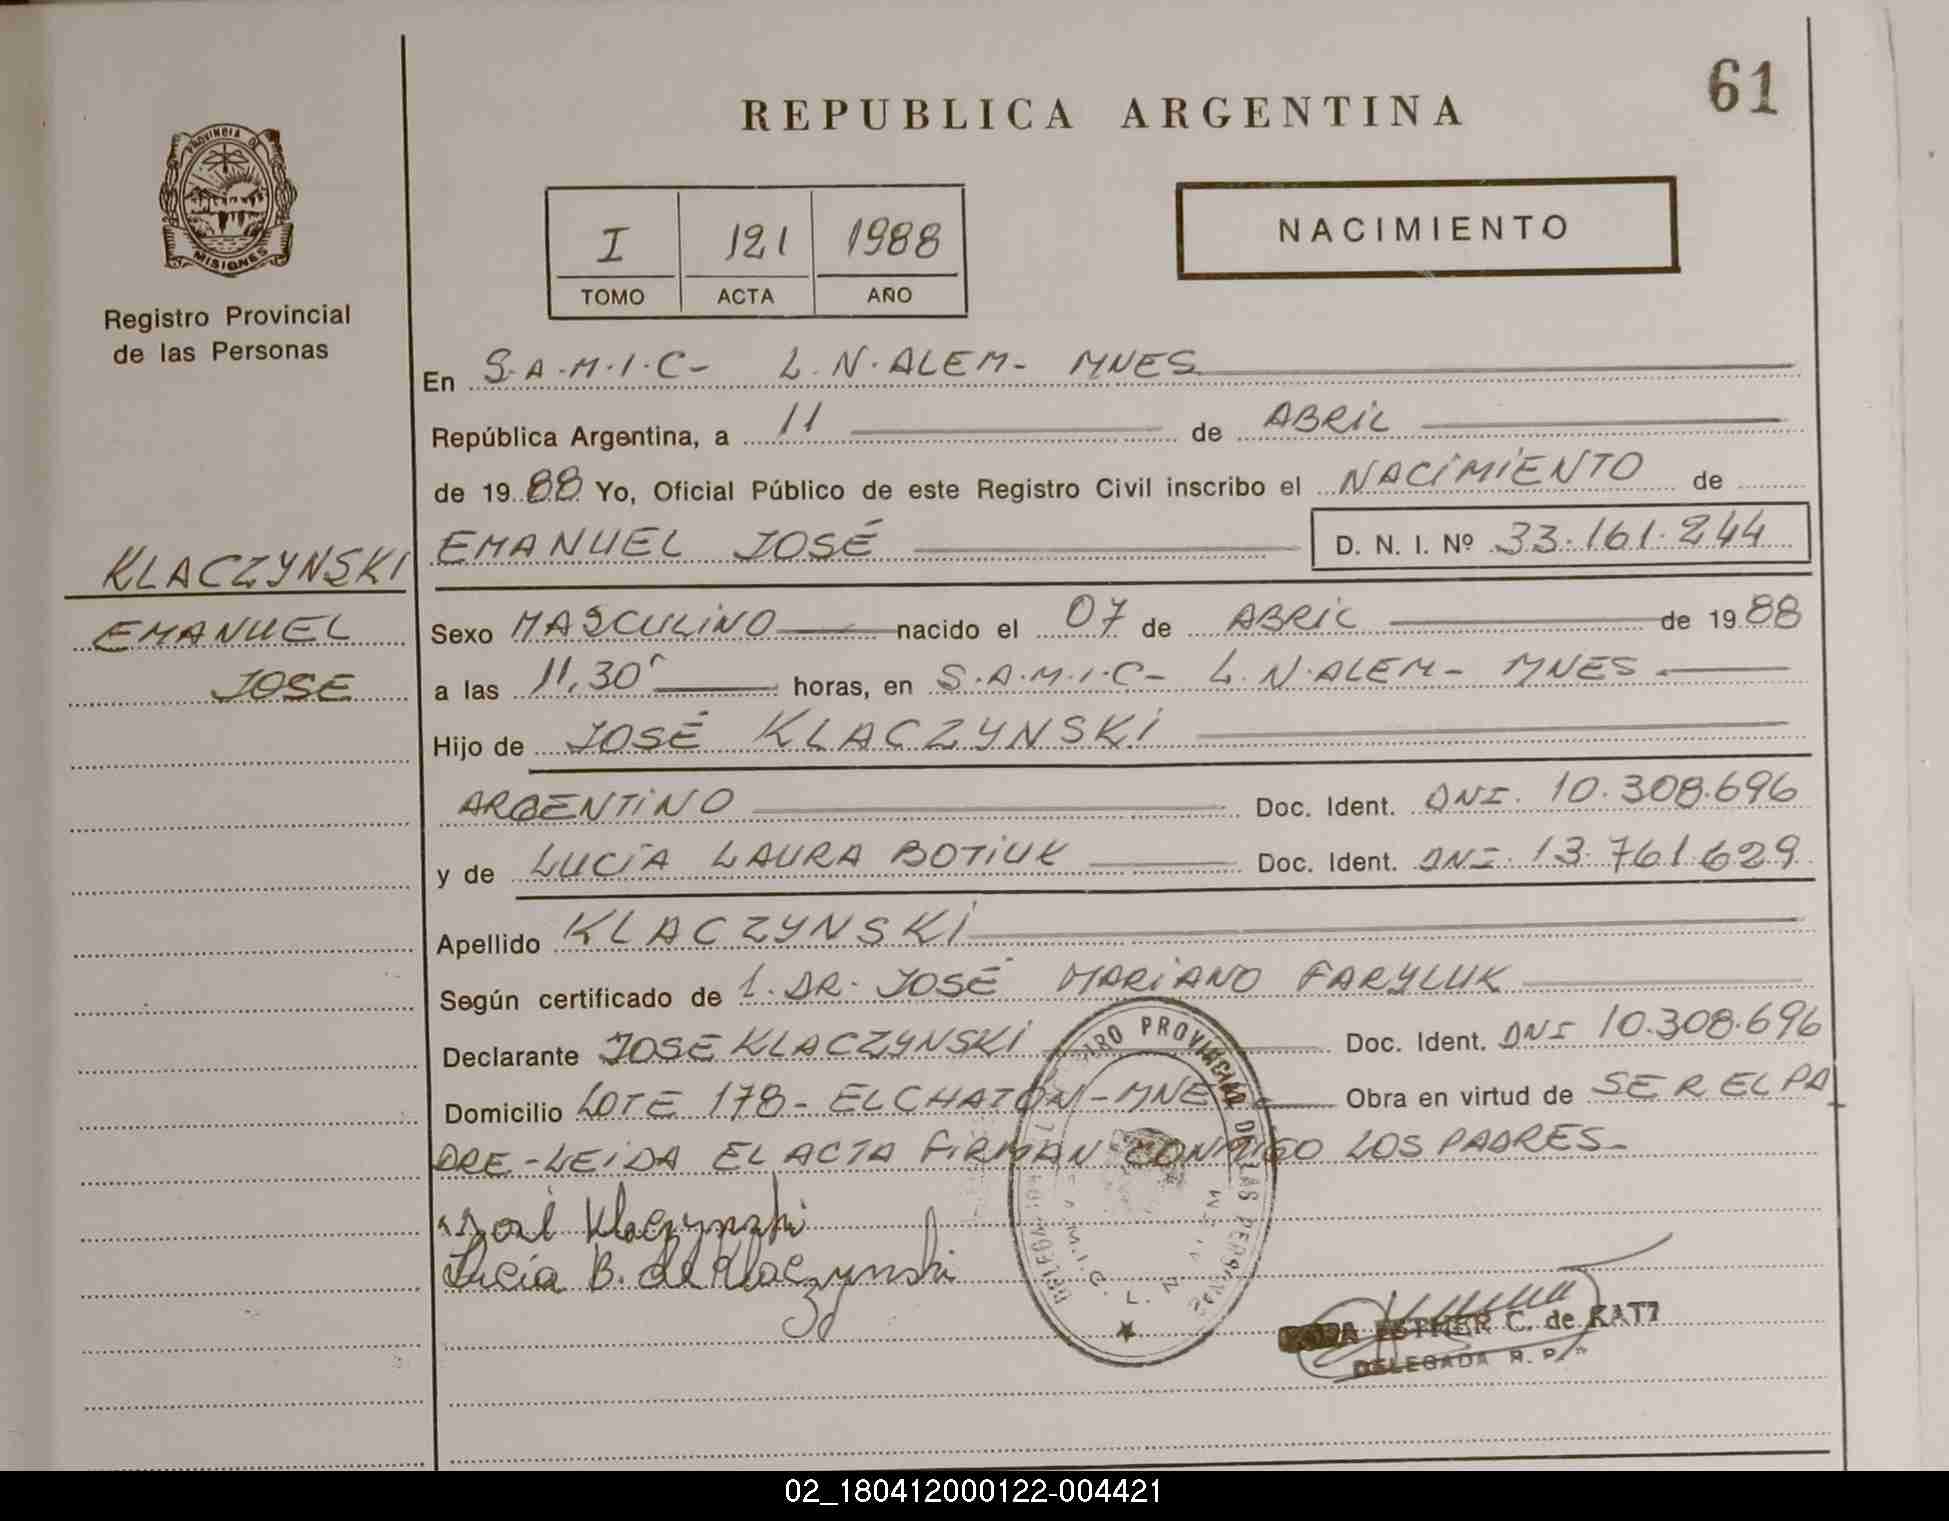 61
REPUBLICA ARGENTINA
PROVINCIA DE
MISIONES
Registro Provincial
de las Personas
I 121 1988
TOMO ACTA AÑO
NACIMIENTO
En S.A.M.I.C- L.N.ALEM- MNES
República Argentina, a 11 de ABRIL
de 19 88 Yo, Oficial Público de este Registro Civil inscribo el NACIMIENTO de
KLACZYNSKI
EMANUEL
JOSE
EMANUEL JOSÉ D. N. I. Nº 33.161.244
Sexo MASCULINO nacido el 07 de ABRIL de 19 88
a las 11,30 horas, en S.A.M.I.C- L.N.ALEM- MNES.
Hijo de JOSÉ KLACZYNSKI
ARGENTINO Doc. Ident. DNI. 10.308.696
y de LUCÍA LAURA BOTIUK Doc. Ident. DNI. 13.761.629
Apellido KLACZYNSKI
Según certificado de 1. DR. JOSÉ MARIANO FARYLUK
Declarante JOSE KLACZYNSKI Doc. Ident. DNI 10.308.696
Domicilio LOTE 178- EL CHATON-MNES Obra en virtud de SER EL PA
DRE-LEIDA EL ACTA FIRMAN CONMIGO LOS PADRES-
José Klaczynski
Lucía B. de Klaczynski
PROVINCIAL DE LAS PERSONAS
S.A.M.I.C. L. N.
ESTHER C. de
DELEGADA R. P.
02_180412000122-004421